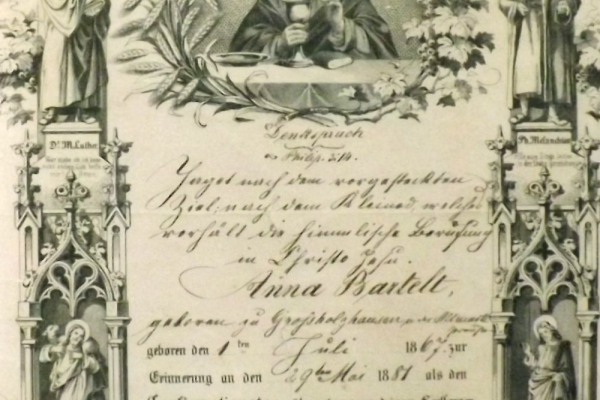 Dr. M. Luther
Ph. Melanchthon
Denkspruch
Philip. 3.14.
Jaget nach dem vorgesteckten
Ziel, nach dem Kleinod, welches
vorhält die himmlische Berufung
in Christo Jesu.
Anna Bartelt,
geboren zu Großholzhausen
geboren den 1ten Juli 1867. zur
Erinnerung an den 29ten Mai 1881 als den